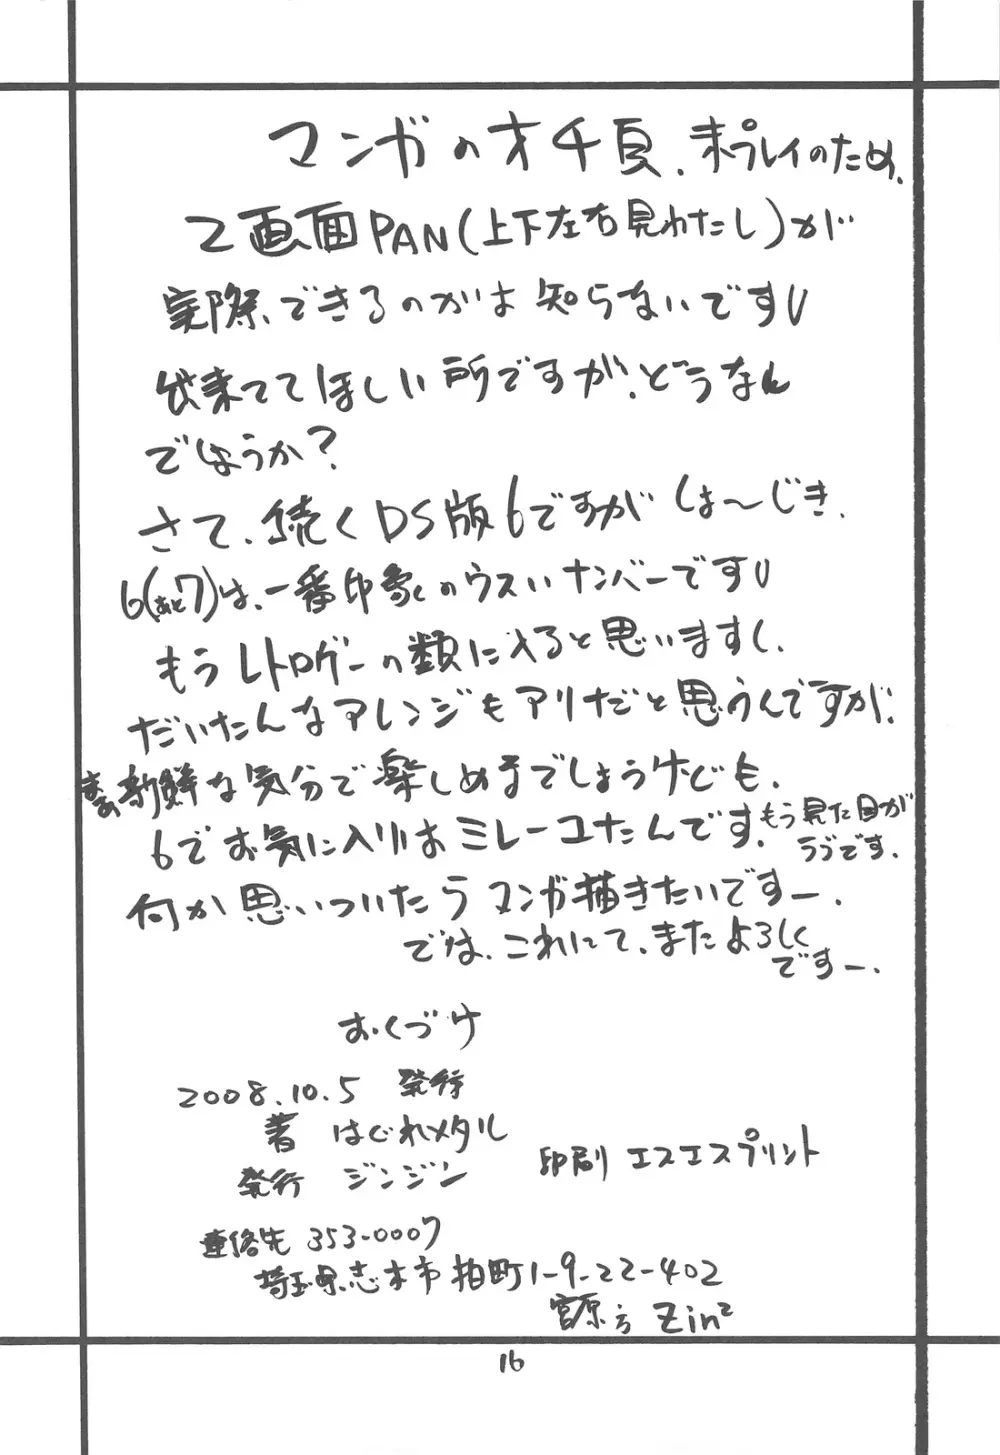 マンガのオチ頁、未プレイのため、
2画面PAN(上下左右見わたし)が
実際、できるのかは知らないですU
出来ててほしい所ですが、どうなん
でしょうか?
さて、続くDS版6ですがしょ〜じき、
6(あと7)は、一番印象のウスいナンバーですU
もうレトロゲーの類に入ると思いますし、
だいたんなアレンジもアリだと思うんですが、
まあ新鮮な気分で楽しめるでしょうけども、
6でお気に入りはミレーユたんです。もう見た目が
ラブです。
何か思いついたらマンガ描きたいですー、
では、これにて、またよろしく
ですー、
おくづけ
2008.10.5 発行
著 はぐれメタル
発行 ジンジン
印刷 エスエスプリント
連絡先 353-0007
埼玉県志木市柏町1-9-22-402
宮原方 Zin²
16